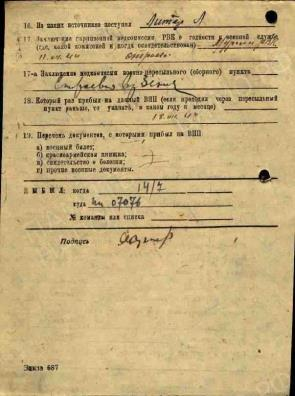 16. Из каких источников поступил
17. Заключение гарнизонной медкомиссии РВК о годности к военной службе
(где, какой комиссией и когда освидетельствован)
17-а Заключение медкомиссии военно-пересыльного (сборного) пункта
18. Который раз прибыл на данный ВПП (если проходил через пересыльный
пункт раньше, то указать, в каком году и месяце)
19. Перечень документов, с которыми прибыл на ВПП
а) военный билет;
б) красноармейская книжка;
в) свидетельство о болезни;
г) прочие военные документы.
ВЫБЫЛ: когда 14/7
куда пп 07076
№ команды или списка
Подпись
Заказ 687